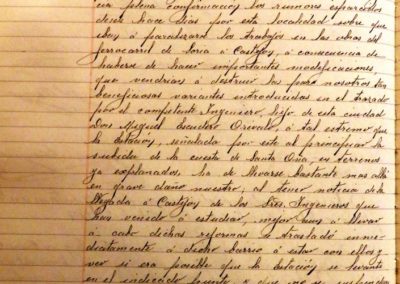 una plena confirmación los rumores esparcidos
desde hace días por esta localidad sobre que
iban á paralizarse los trabajos en las obras del
ferrocarril de Soria á Castejón, á consecuencia de
haberse de hacer importantes modificaciones,
que vendrían á destruir las para nosotros tan
beneficiosas variantes introducidas en el trazado
por el competente Ingeniero, hijo de esta ciudad
Don Miguel Escudero Arévalo, á tal estremo que
la Estación, señalada por este al principiar la
subida de la cuesta de Santa Ana, en terrenos
ya explanados, ha de llevarse bastante mas allá
en grave daño nuestro; al tener noticia de la
llegada á Castejón de los tres Ingenieros que
han venido á estudiar, mejor á llevar
á cabo dichas reformas se trasladó inme-
diatamente á dicho barrio á estar con ellos y
ver si era posible que la Estación se levante
en el indicado punto y que no se